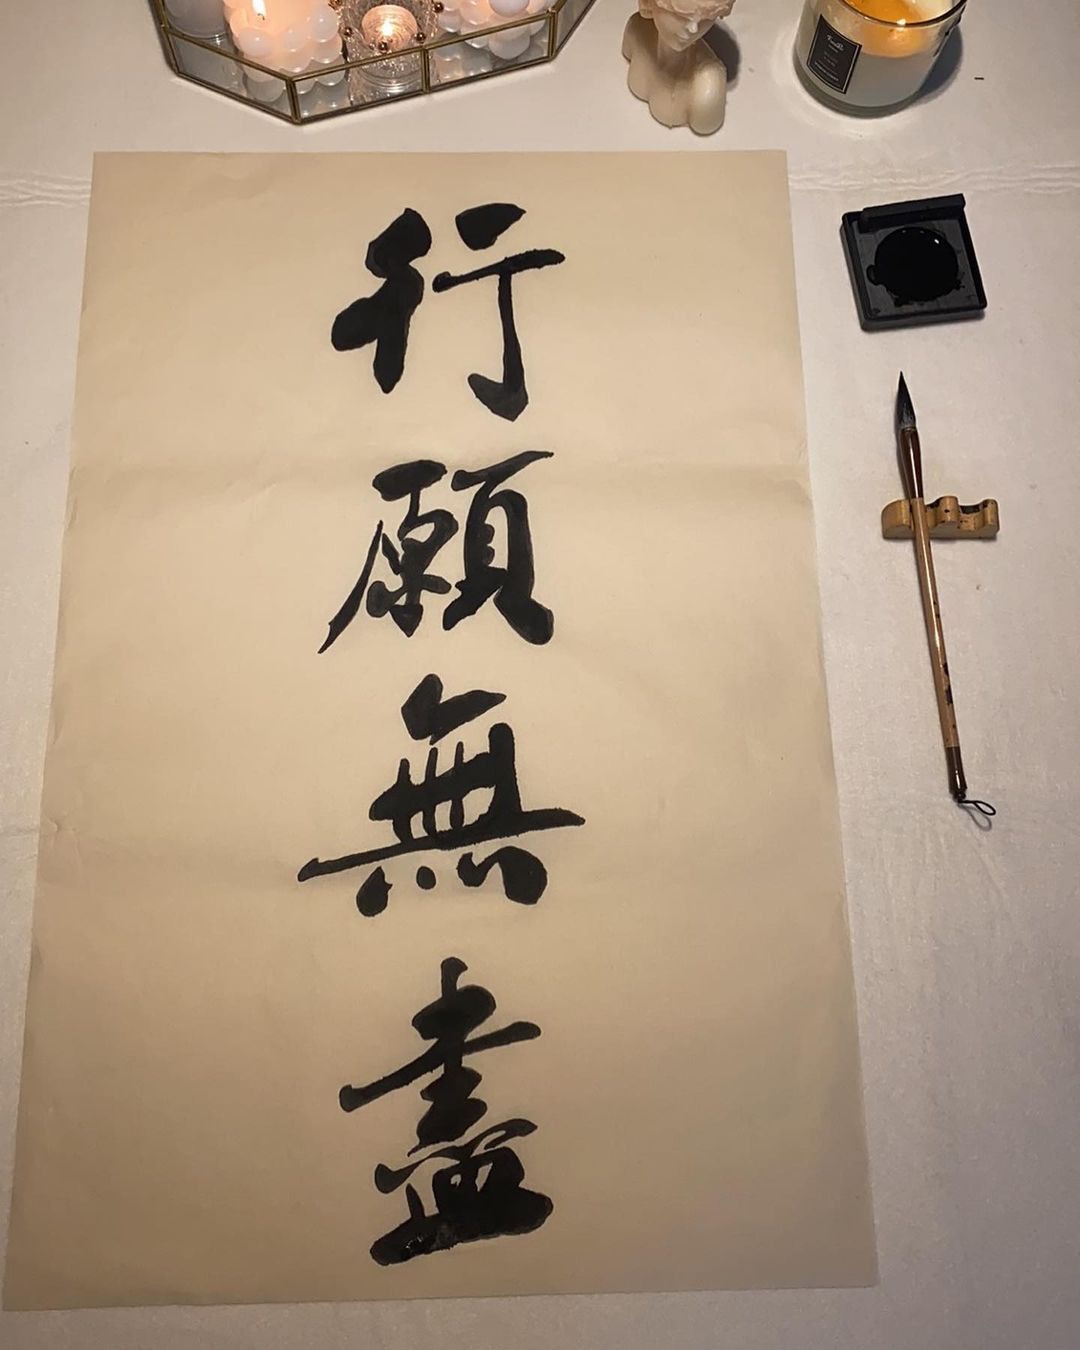 行願無盡